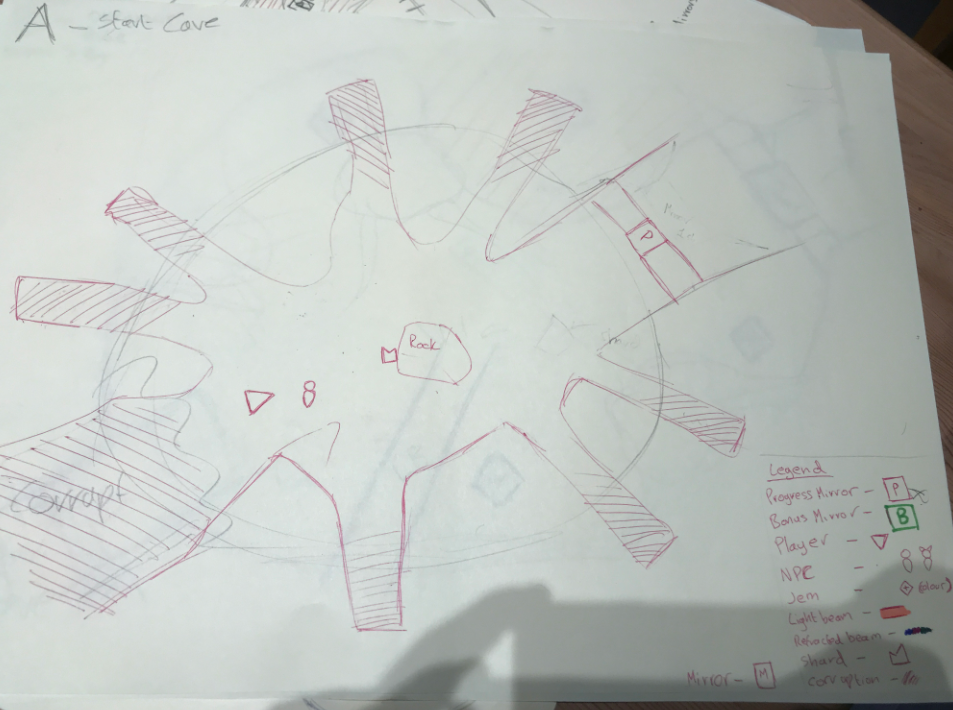 A - Start Cave
P
Rock
Corrupt
Legend
Progress Mirror - P
Bonus Mirror - B
Player -
NPC -
Jem - (colour)
Light beam -
Refracted beam -
Shard -
Mirror - M
Corruption -